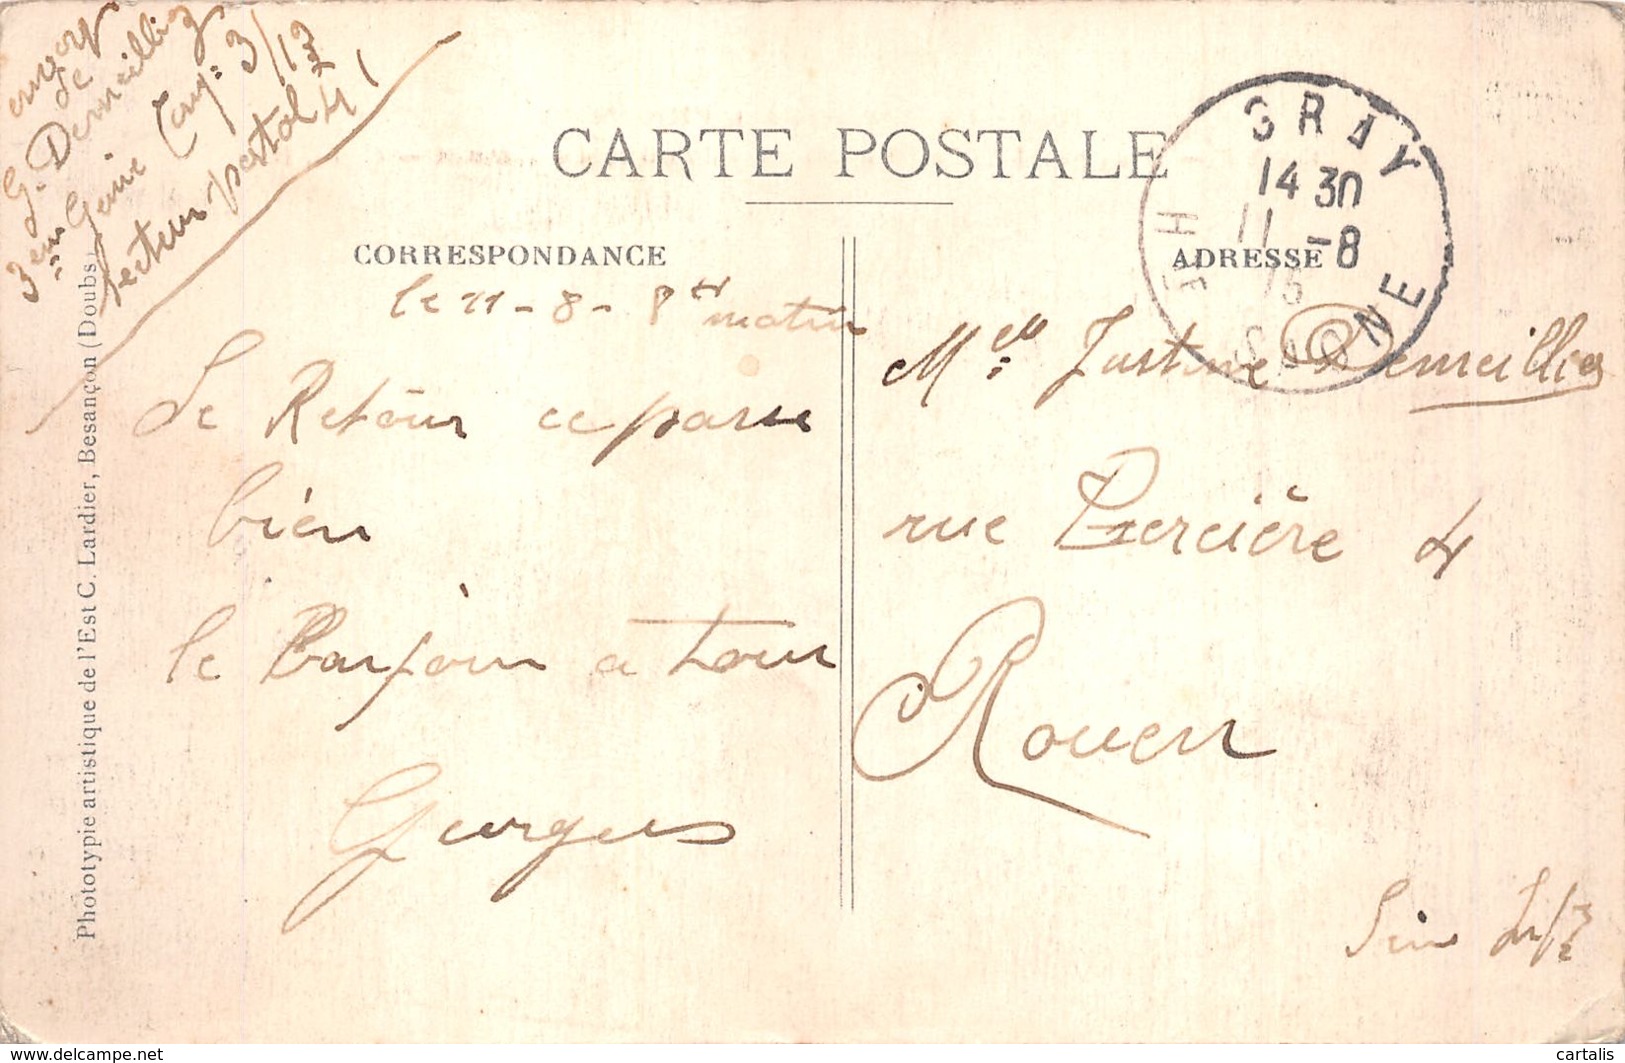 envoy
de
G. Demeilliez
3em Genie Comp: 3/13
secteur postal 41
CARTE POSTALE
CORRESPONDANCE
ADRESSE
GRAY
14 30
11 -8
15
HTE SAONE
le 11 - 8 - 8 H matin
Le Retour ce passe
bien
le Bonjour a tous
Georges
Melle Justine Demeilliez
rue Percière 4
Rouen
Seine Infre
Phototypie artistique de l'Est C. Lardier, Besançon (Doubs)
www.delcampe.net
cartalis